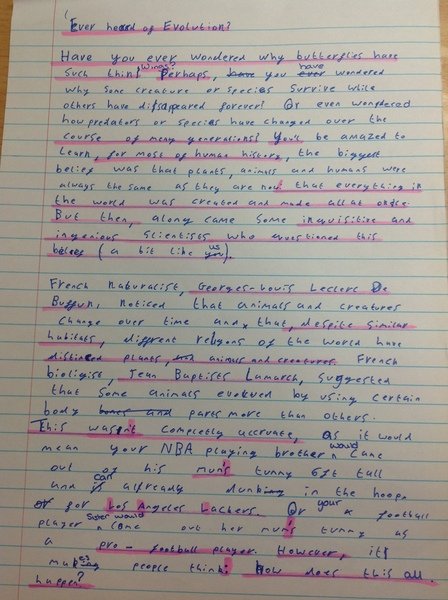 Ever heard of Evolution?
Have you ever wondered why butterflies have
such thin wings? Perhaps, have you ever have wondered
why some creature or species survive while
others have disapeared forever! Or even wondered
how predators or species have changed over the
course of many generations? You'll be amazed to
learn, for most of human history, the biggest
belief was that plants, animals and humans were
always the same as they are now: that everything in
the world was created and made all at once.
But then, along came some inquisitive and
ingenious scientists who questioned this
belief (a bit like us you).
French naturalist, Georges-Louis Leclerc De
Buffun, noticed that animals and creatures
change over time and that, despite similar
habitats, different regions of the world have
distinced plants, and animals and creatures. French
bioligist, Jean Baptists Lamarch, suggested
that some animals evolved by using certain
body bones and parts more than others.
This wasn't completly accruate, as it would
mean your NBA playing brother would came
out of his mum's tummy 6ft tall
and is can already dunking in the hoops
or for Los Angeles Lackers. Or your a football
player super would come out her mum's tummy as
a pro-football player. However, it
making es people think: How does this all
happen?